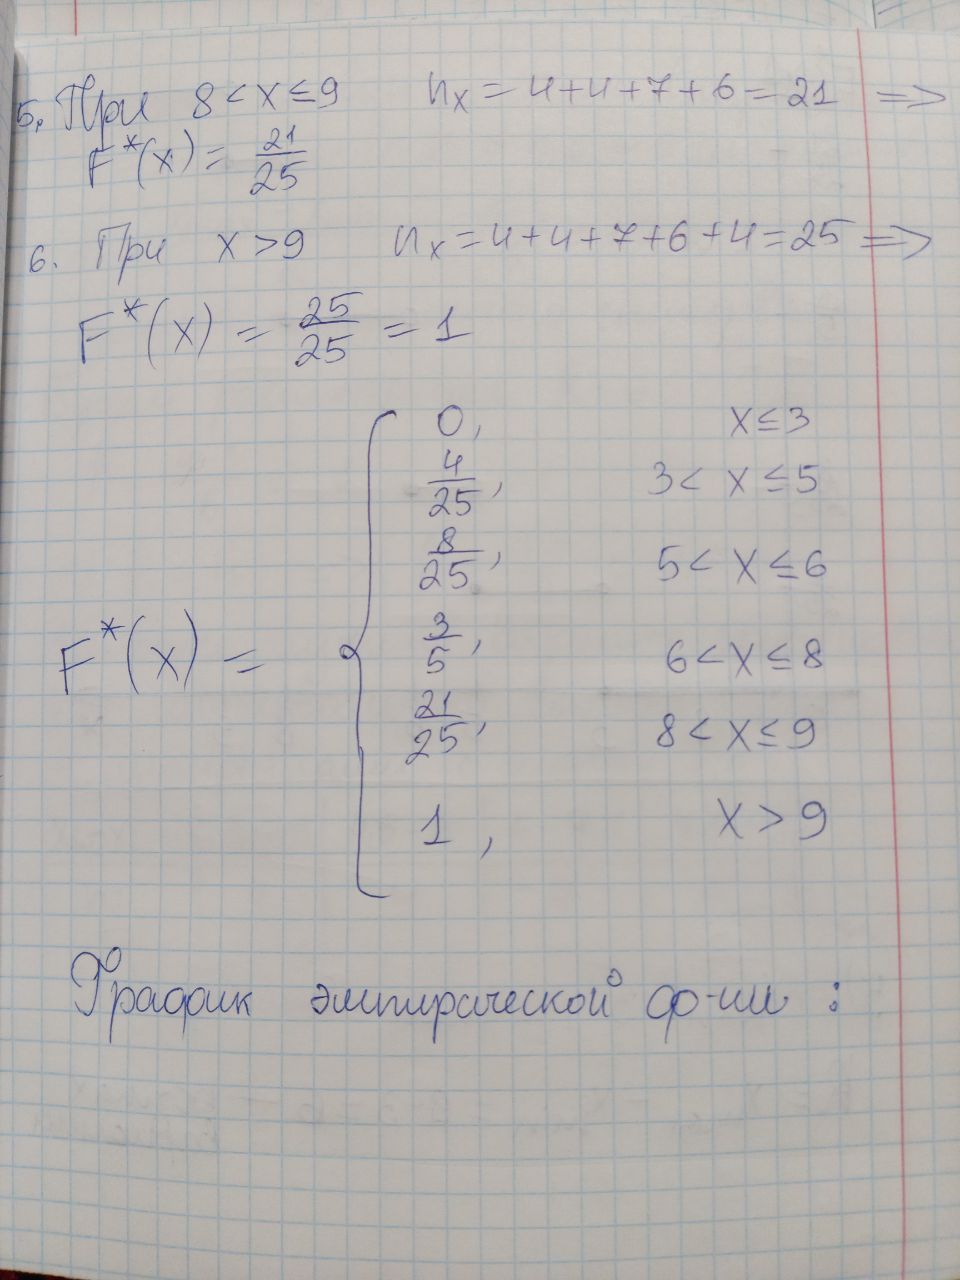 5. При 8 < x ≤ 9 n_x = 4+4+7+6 = 21 =>
F*(x) = 21/25
6. При x > 9 n_x = 4+4+7+6+4 = 25 =>
F*(x) = 25/25 = 1
0, x ≤ 3
4/25, 3 < x ≤ 5
8/25, 5 < x ≤ 6
F*(x) = { 3/5, 6 < x ≤ 8
21/25, 8 < x ≤ 9
1, x > 9
График эмпирической ф-ии :